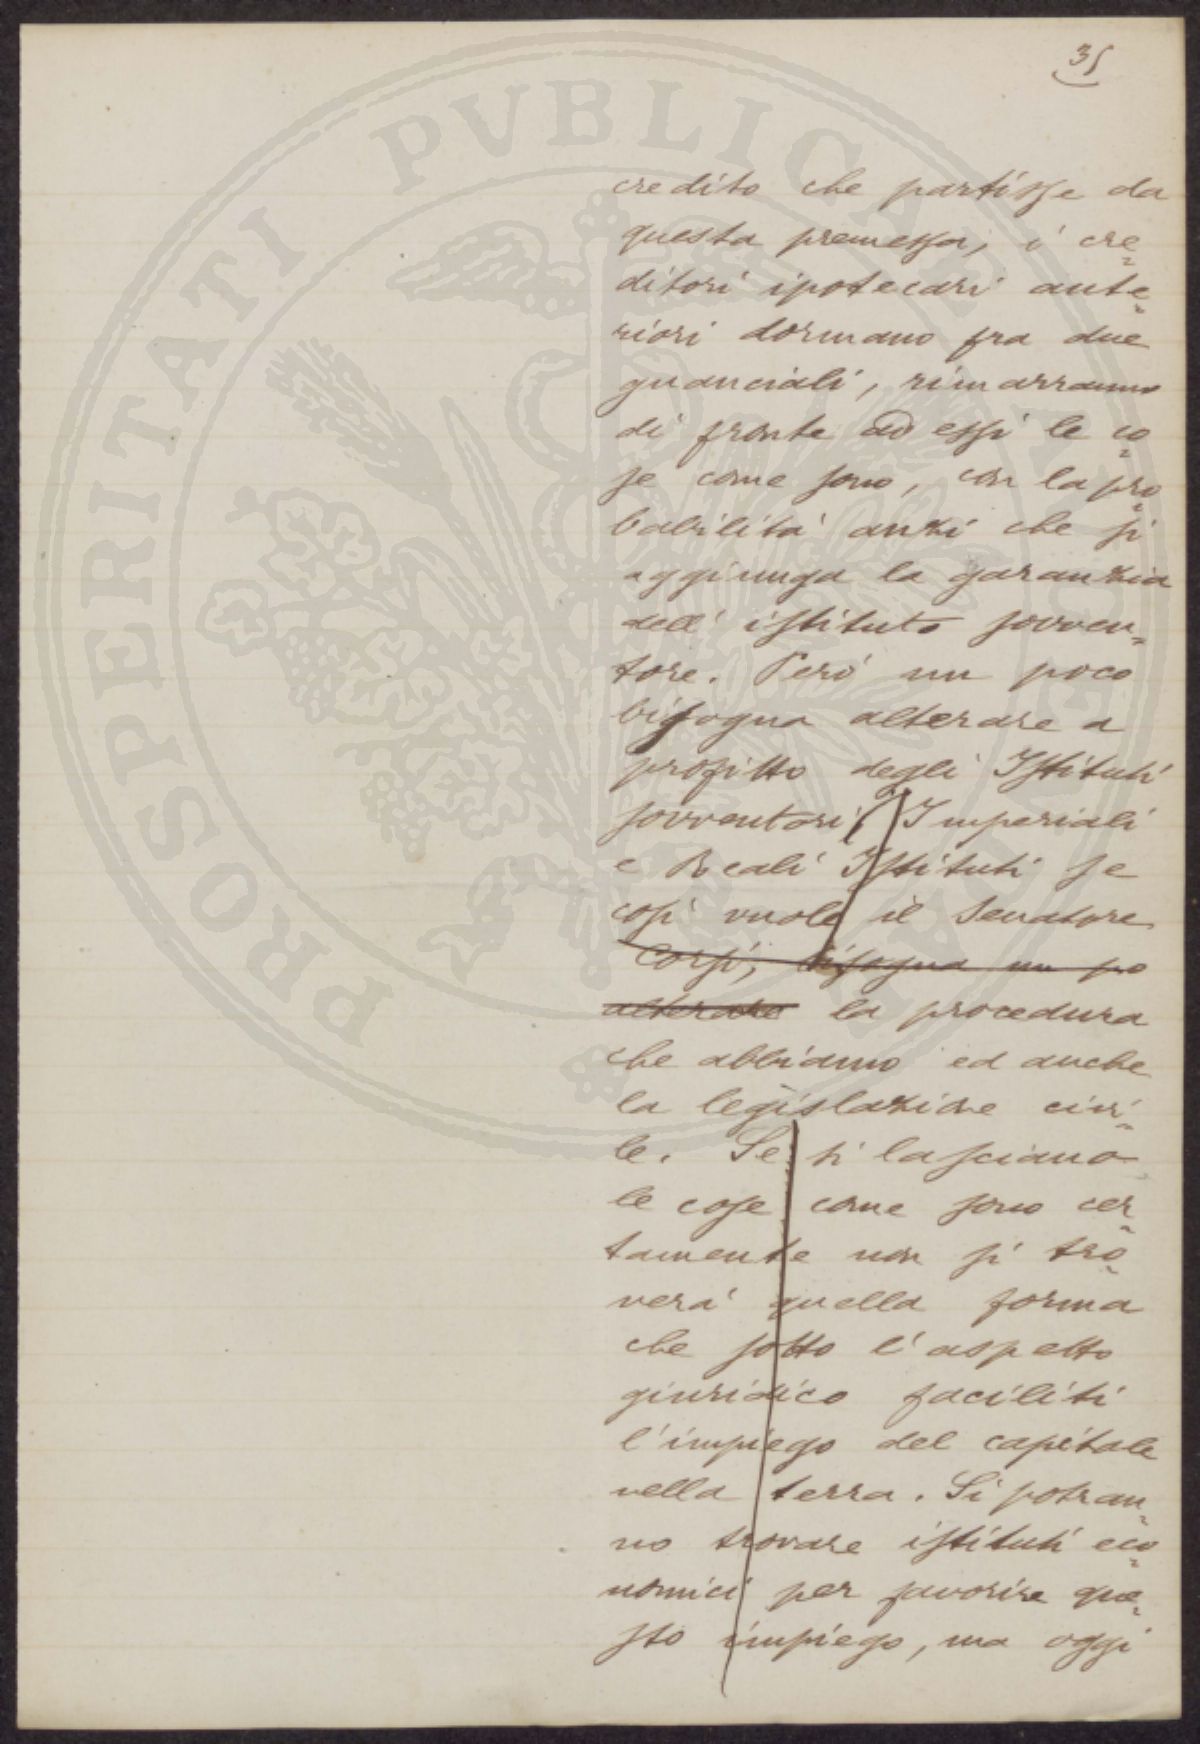 35
credito che partisse da
questa premessa, i cre=
ditori ipotecari ante=
riori dormano fra due
guanciali, rimarranno
di fronte ad essi le co=
se come sono, con la pro=
babilità anzi che si
aggiunga la garanzia
dell'istituto sovven=
tore. Però un poco
bisogna alterare a
profitto degli Istituti
sovventori (Imperiali
e Reali Istituti se
così vuole il Senatore
Corsi, bisogna un po
alterare la procedura
che abbiamo ed anche
la legislazione civi=
le. Se si lasciano
le cose come sono cer=
tamente non si tro=
verà quella forma
che sotto l'aspetto
giuridico faciliti
l'impiego del capitale
nella terra. Si potran=
no trovare istituti eco=
nomici per favorire que=
sto impiego, ma oggi
PROSPERITATI PVBLICAE